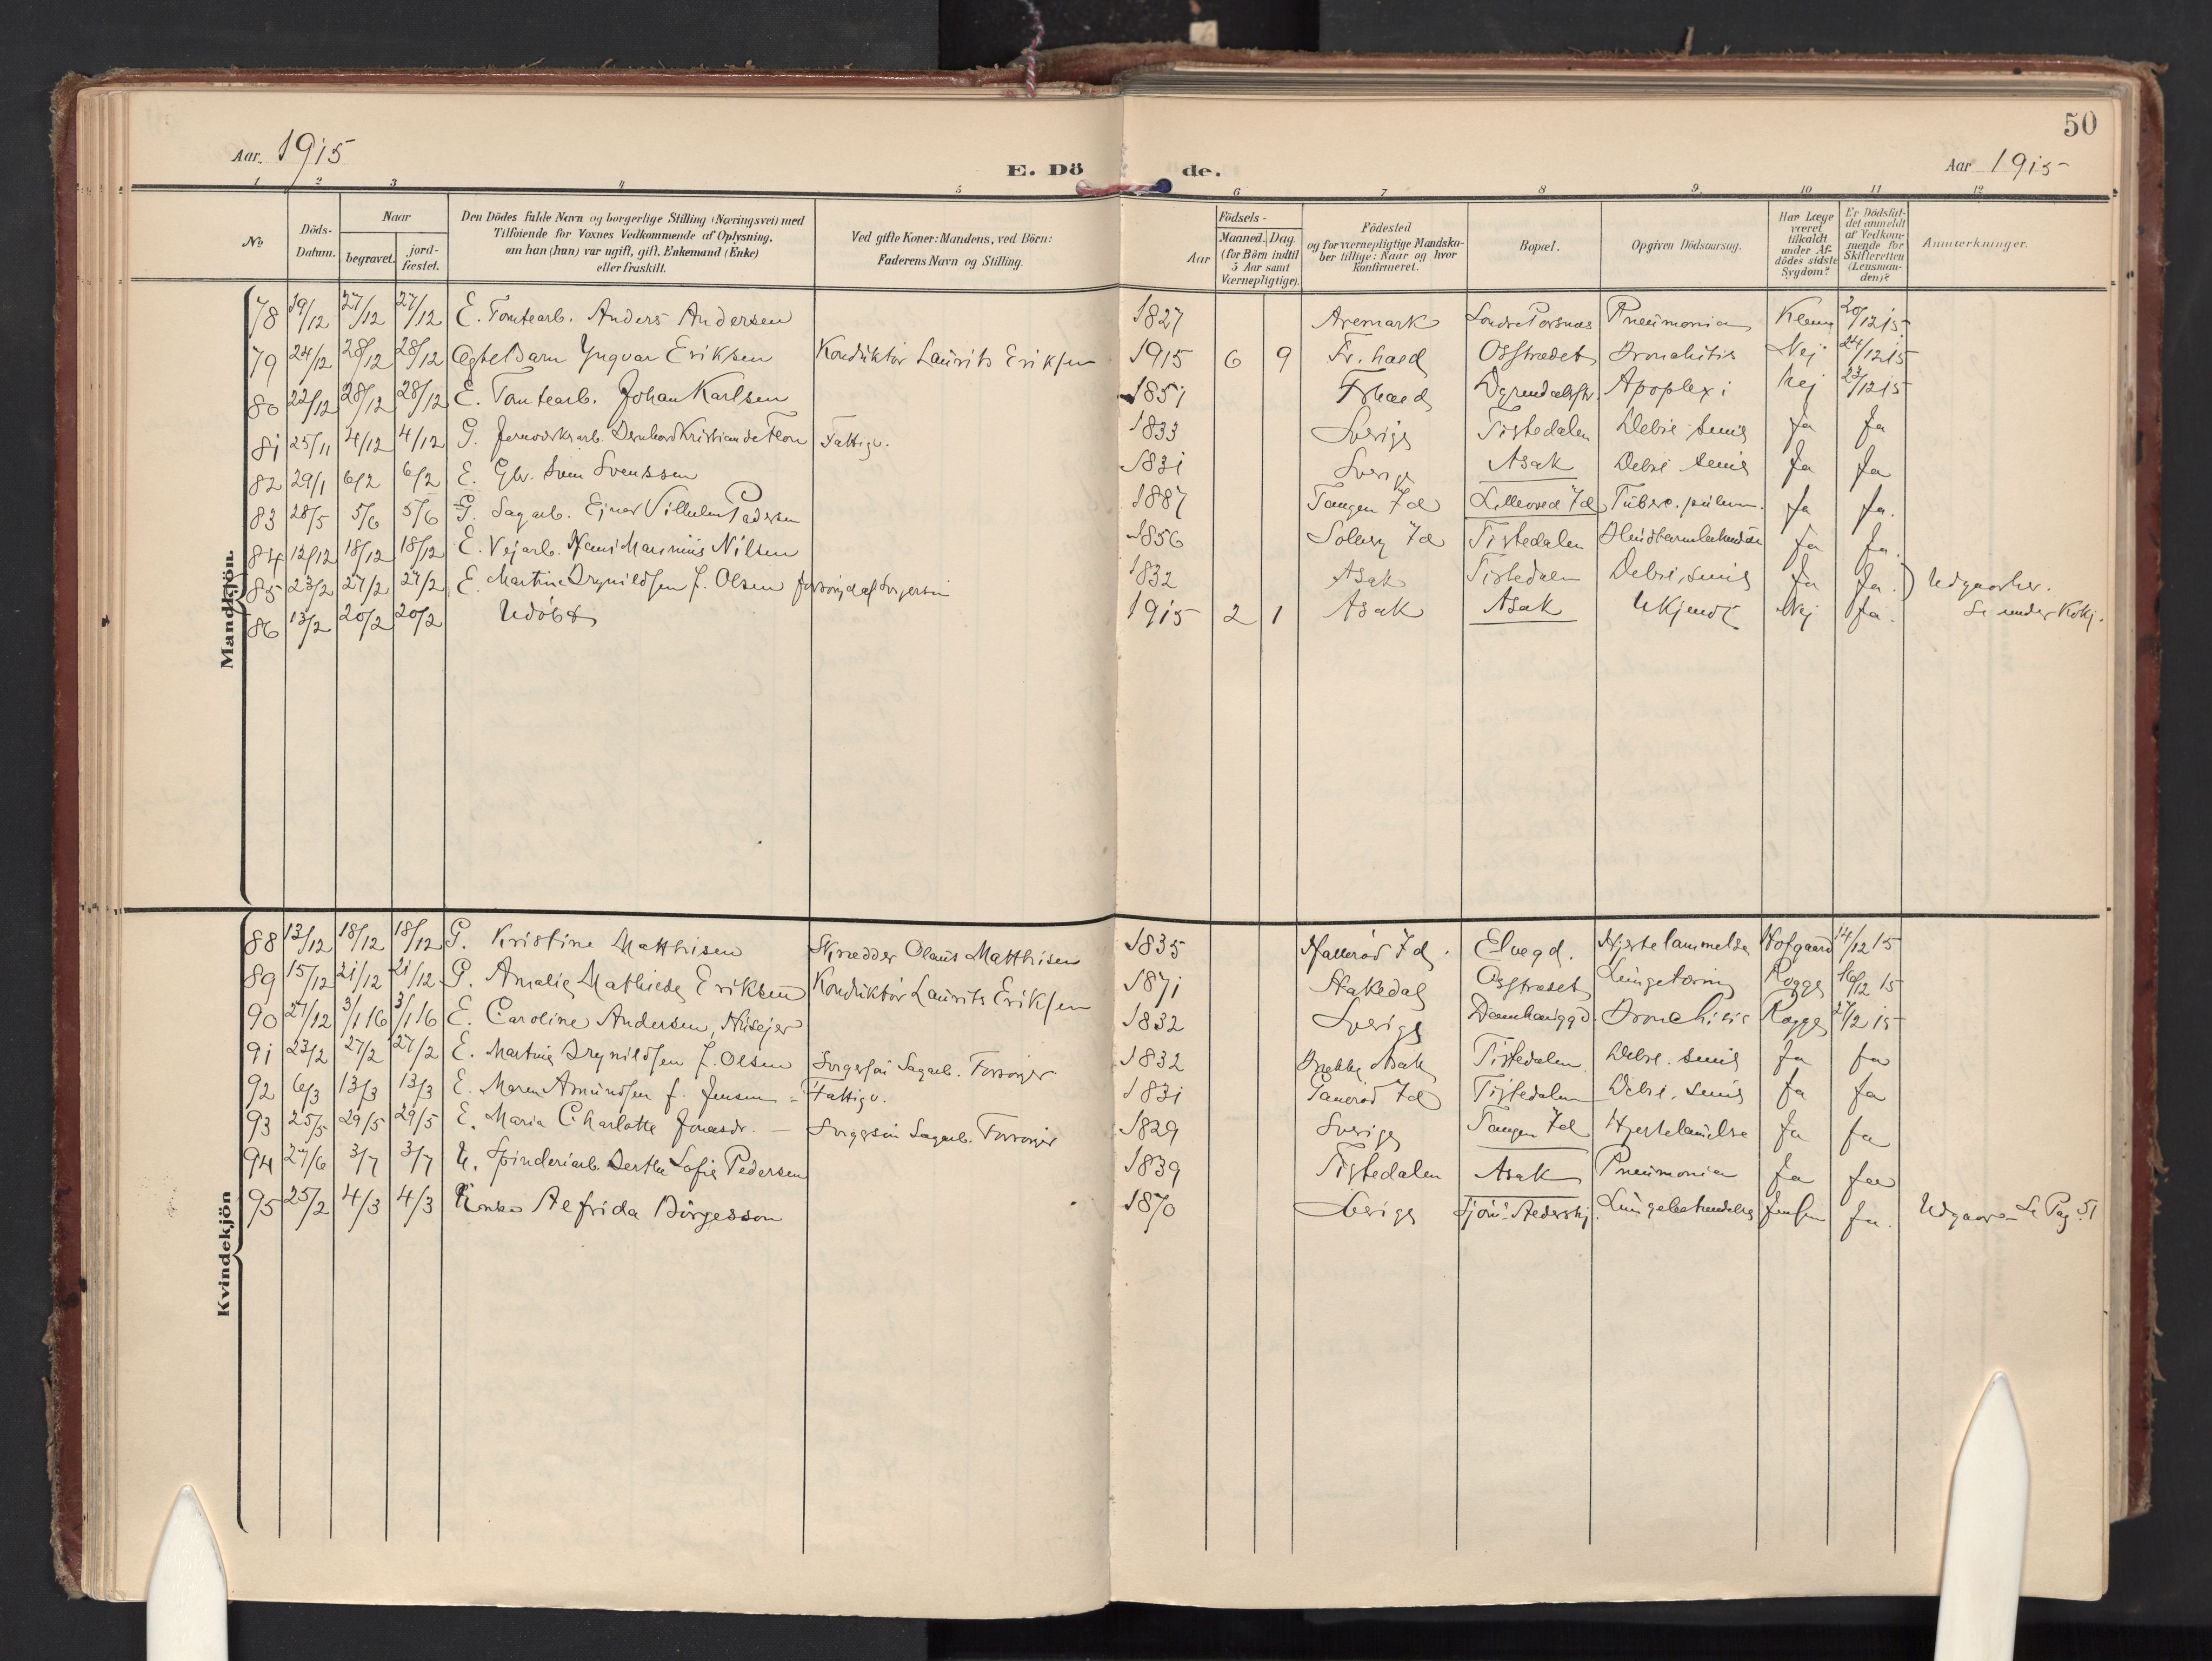 50
Aar. 1915
E. Dö de.
Aar 1915
1 2 3 4 5 6 7 8 9. 10 11 12
No
Döds-Datum.
Naar
begravet. jord-fæstet.
Den Dödes fulde Navn og borgerlige Stilling (Næringsvei) med
Tilföiende for Voxnes Vedkommende af Oplysning,
om han (hun) var ugift, gift, Enkemand (Enke)
eller fraskilt.
Ved gifte Koner: Mandens, ved Börn:
Faderens Navn og Stilling.
Födsels-
Aar Maaned. Dag.
(for Börn indtil
5 Aar samt
Værnepligtige).
Födested
og for værnepligtige Mandska-
ber tillige: Naar og hvor
konfirmeret.
Bopæl.
Opgiven Dödsaarsag.
Har Læge
været
tilkaldt
under Af-
dödes sidste
Sygdom?
Er Dödsfal-
det anmeldt
af Vedkom-
mende for
Skifteretten
(Lensman-
den)?
Anmærkninger.
Mandkjön.
78 19/12 27/12 27/12 E. Tomtearb. Anders Andersen 1827 Aremark Søndre Porsnæs Pneumonia 20/12 15
79 24/12 28/12 28/12 Ægte Barn Yngvar Eriksen Konduktør Laurits Eriksen 1915 6 9 Fr. hald Osstrædet Bronchitis Nej 24/12 15
80 22/12 28/12 28/12 E. Tomtearb. Johan Karlsen 1851 Frhald Apoplexi Nej 23/12 15
81 25/11 4/12 4/12 G. Jernverksarb. Bernhard Kristian de Flon Fattigv. 1833 Sverige Tistedalen Debil. senil Ja Ja
82 29/1 6/2 6/2 E. Gbr. Sven Svenssen 1831 Sverige Asak Debil senil Ja Ja
83 28/5 5/6 5/6 G. Sagarb. Ejnar Vilhelm Pedersen 1887 Tangen Id Lilleöved Id Tuberc. pulmn. Ja Ja.
84 12/12 18/12 18/12 E. Vejarb. Hans Marinius Nilsen 1856 Solberg Id Tistedalen Ja Ja.
85 23/2 27/2 27/2 E. Martine Brynildsen f. Olsen forsörjd af Svigersön 1832 Asak Tistedalen Debil, senil Ja Ja. Udgaar her.
86 13/2 20/2 20/2 Udöbt 1915 2 1 Asak Asak Ukjendt Nej Ja. Se under Kvkj.
Kvindekjön
88 13/12 18/12 18/12 G. Kristine Matthisen Skrædder Olaus Matthisen 1835 Id. Elvegd. Hjertelammelse Hofgaard 14/12 15
89 15/12 21/12 21/12 G. Amalie Mathilde Eriksen Konduktør Laurits Eriksen 1871 Stakedal Osstrædet Lungetæring Rogge 16/12 15
90 27/12 3/1 16 3/1 16 E. Caroline Andersen, Husejer 1832 Sverige Damhauggd. Bronchitis Rogge 27/12 15
91 23/2 27/2 27/2 E. Martine Brynildsen f. Olsen Svigersön Sagarb. Forsörjer 1832 Brekke Asak Tistedalen Debil. senil Ja Ja
92 6/3 13/3 13/3 E. Maren Amundsen f. Jensen = Fattigv. 1831 Id Tistedalen Debil. senil Ja Ja
93 25/5 29/5 29/5 E. Maria Charlotte Jonasdr. — Svigersön Sagarb. Forsörjer 1829 Sverige Tangen Id Hjertelamelse Ja Ja
94 27/6 3/7 3/7 U. Spinderiarb. Berthe Sofie Pedersen 1839 Tistedalen Asak Pneumonia Ja Ja
95 25/2 4/3 4/3 Enke Alfrida Börgesson 1870 Sverige Lungebetændelse Jensen Ja. Udgaar — Se Pag 51